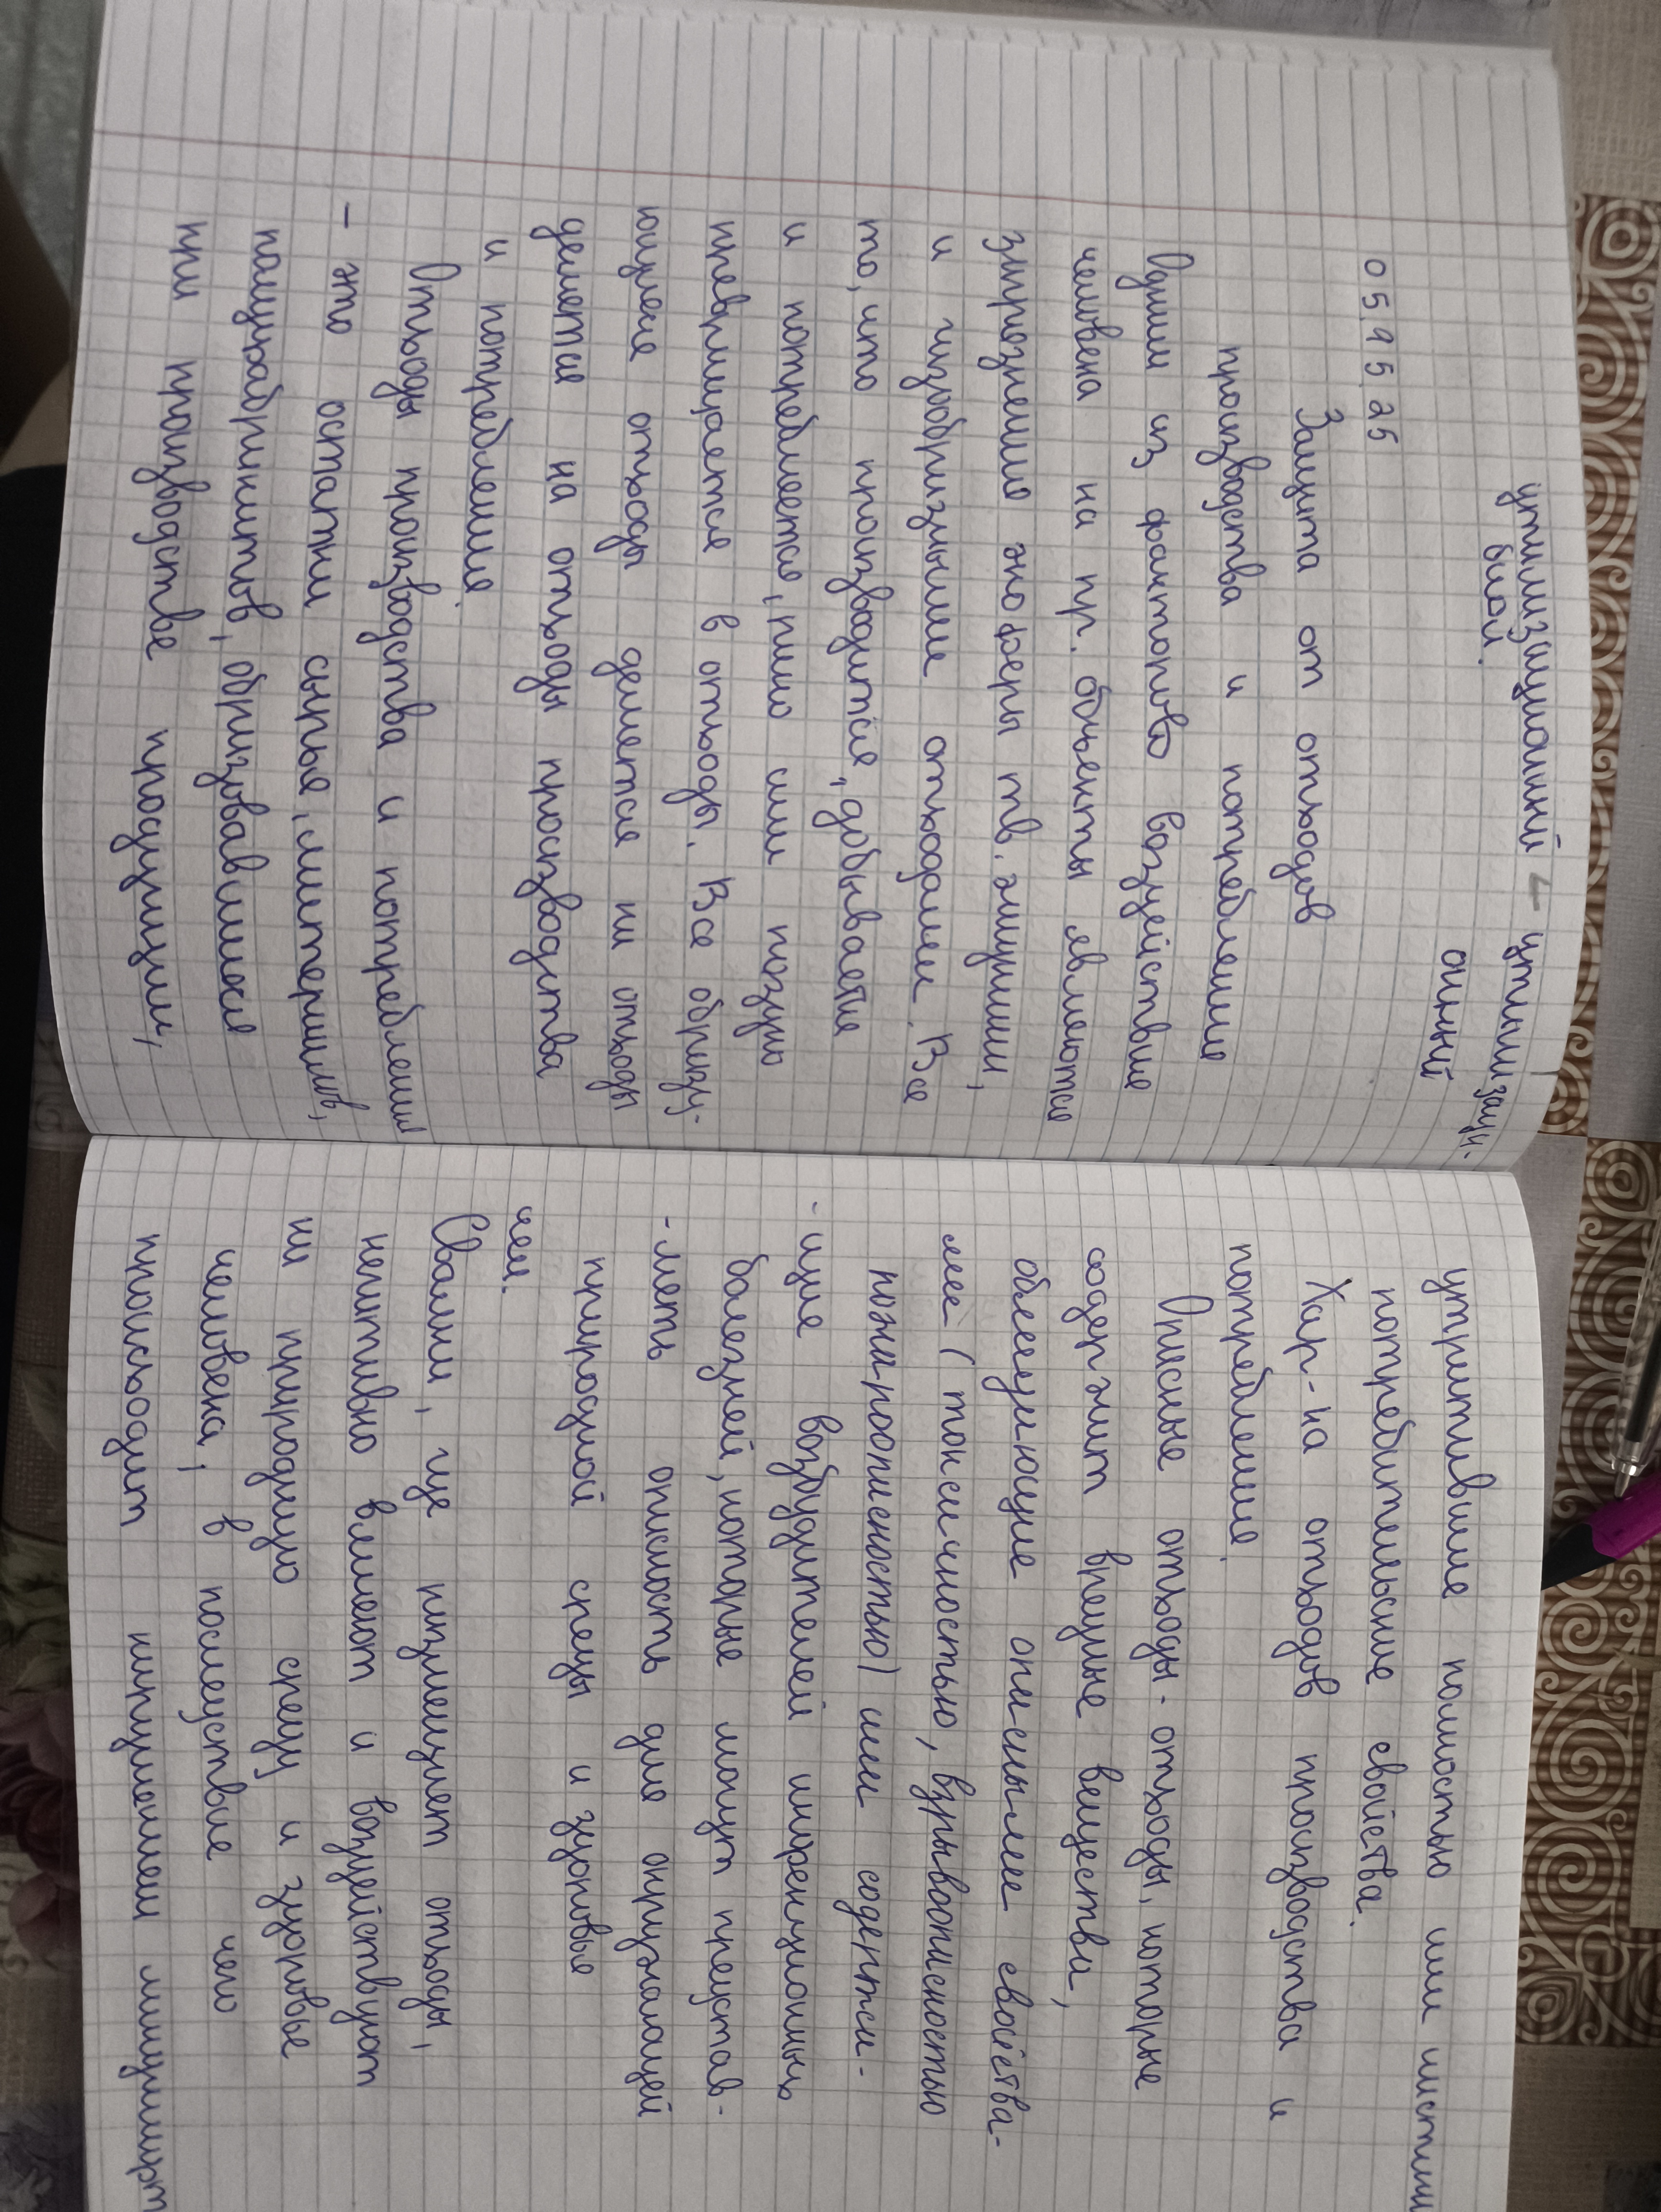 утилизационный – утилизаци-
вной. онный
05 95 25
Защита от отходов
производства и потребление
Одним из факторов воздействие
человека на пр. объекты являются
загрознению экосферы тв. ... ,
и газобразными отходами. Все
то, что производится, добывается
и потребляется, рано или поздно
превращается в отходы. Все образу-
ющиеся отходы делятся на отходы
делятся на отходы производства
и потребление.
Отходы производства и потребления
– это остатки сырье, материалов,
полуфабрикатов, образовавшиеся
при производстве продукции,
утратившие полностью или частично
потребительские свойства.
Хар-ка отходов производства и
потребление.
Опасные отходы - отходы, которые
содержит вредные вещества,
обладующие опасными свойства-
ми (токсичностью, взрывоопасностью
пожароопасностью) или содержа-
-щие возбудителей инфекционных
болезней, которые могут представ-
-лять опасность для окружающей
природной среды и здоровье
чел.
Свалки, где размещают отходы,
негативно влияют и воздействуют
на природную среду и здоровье
человека, в последствие чего
происходит нарушении ландшафт